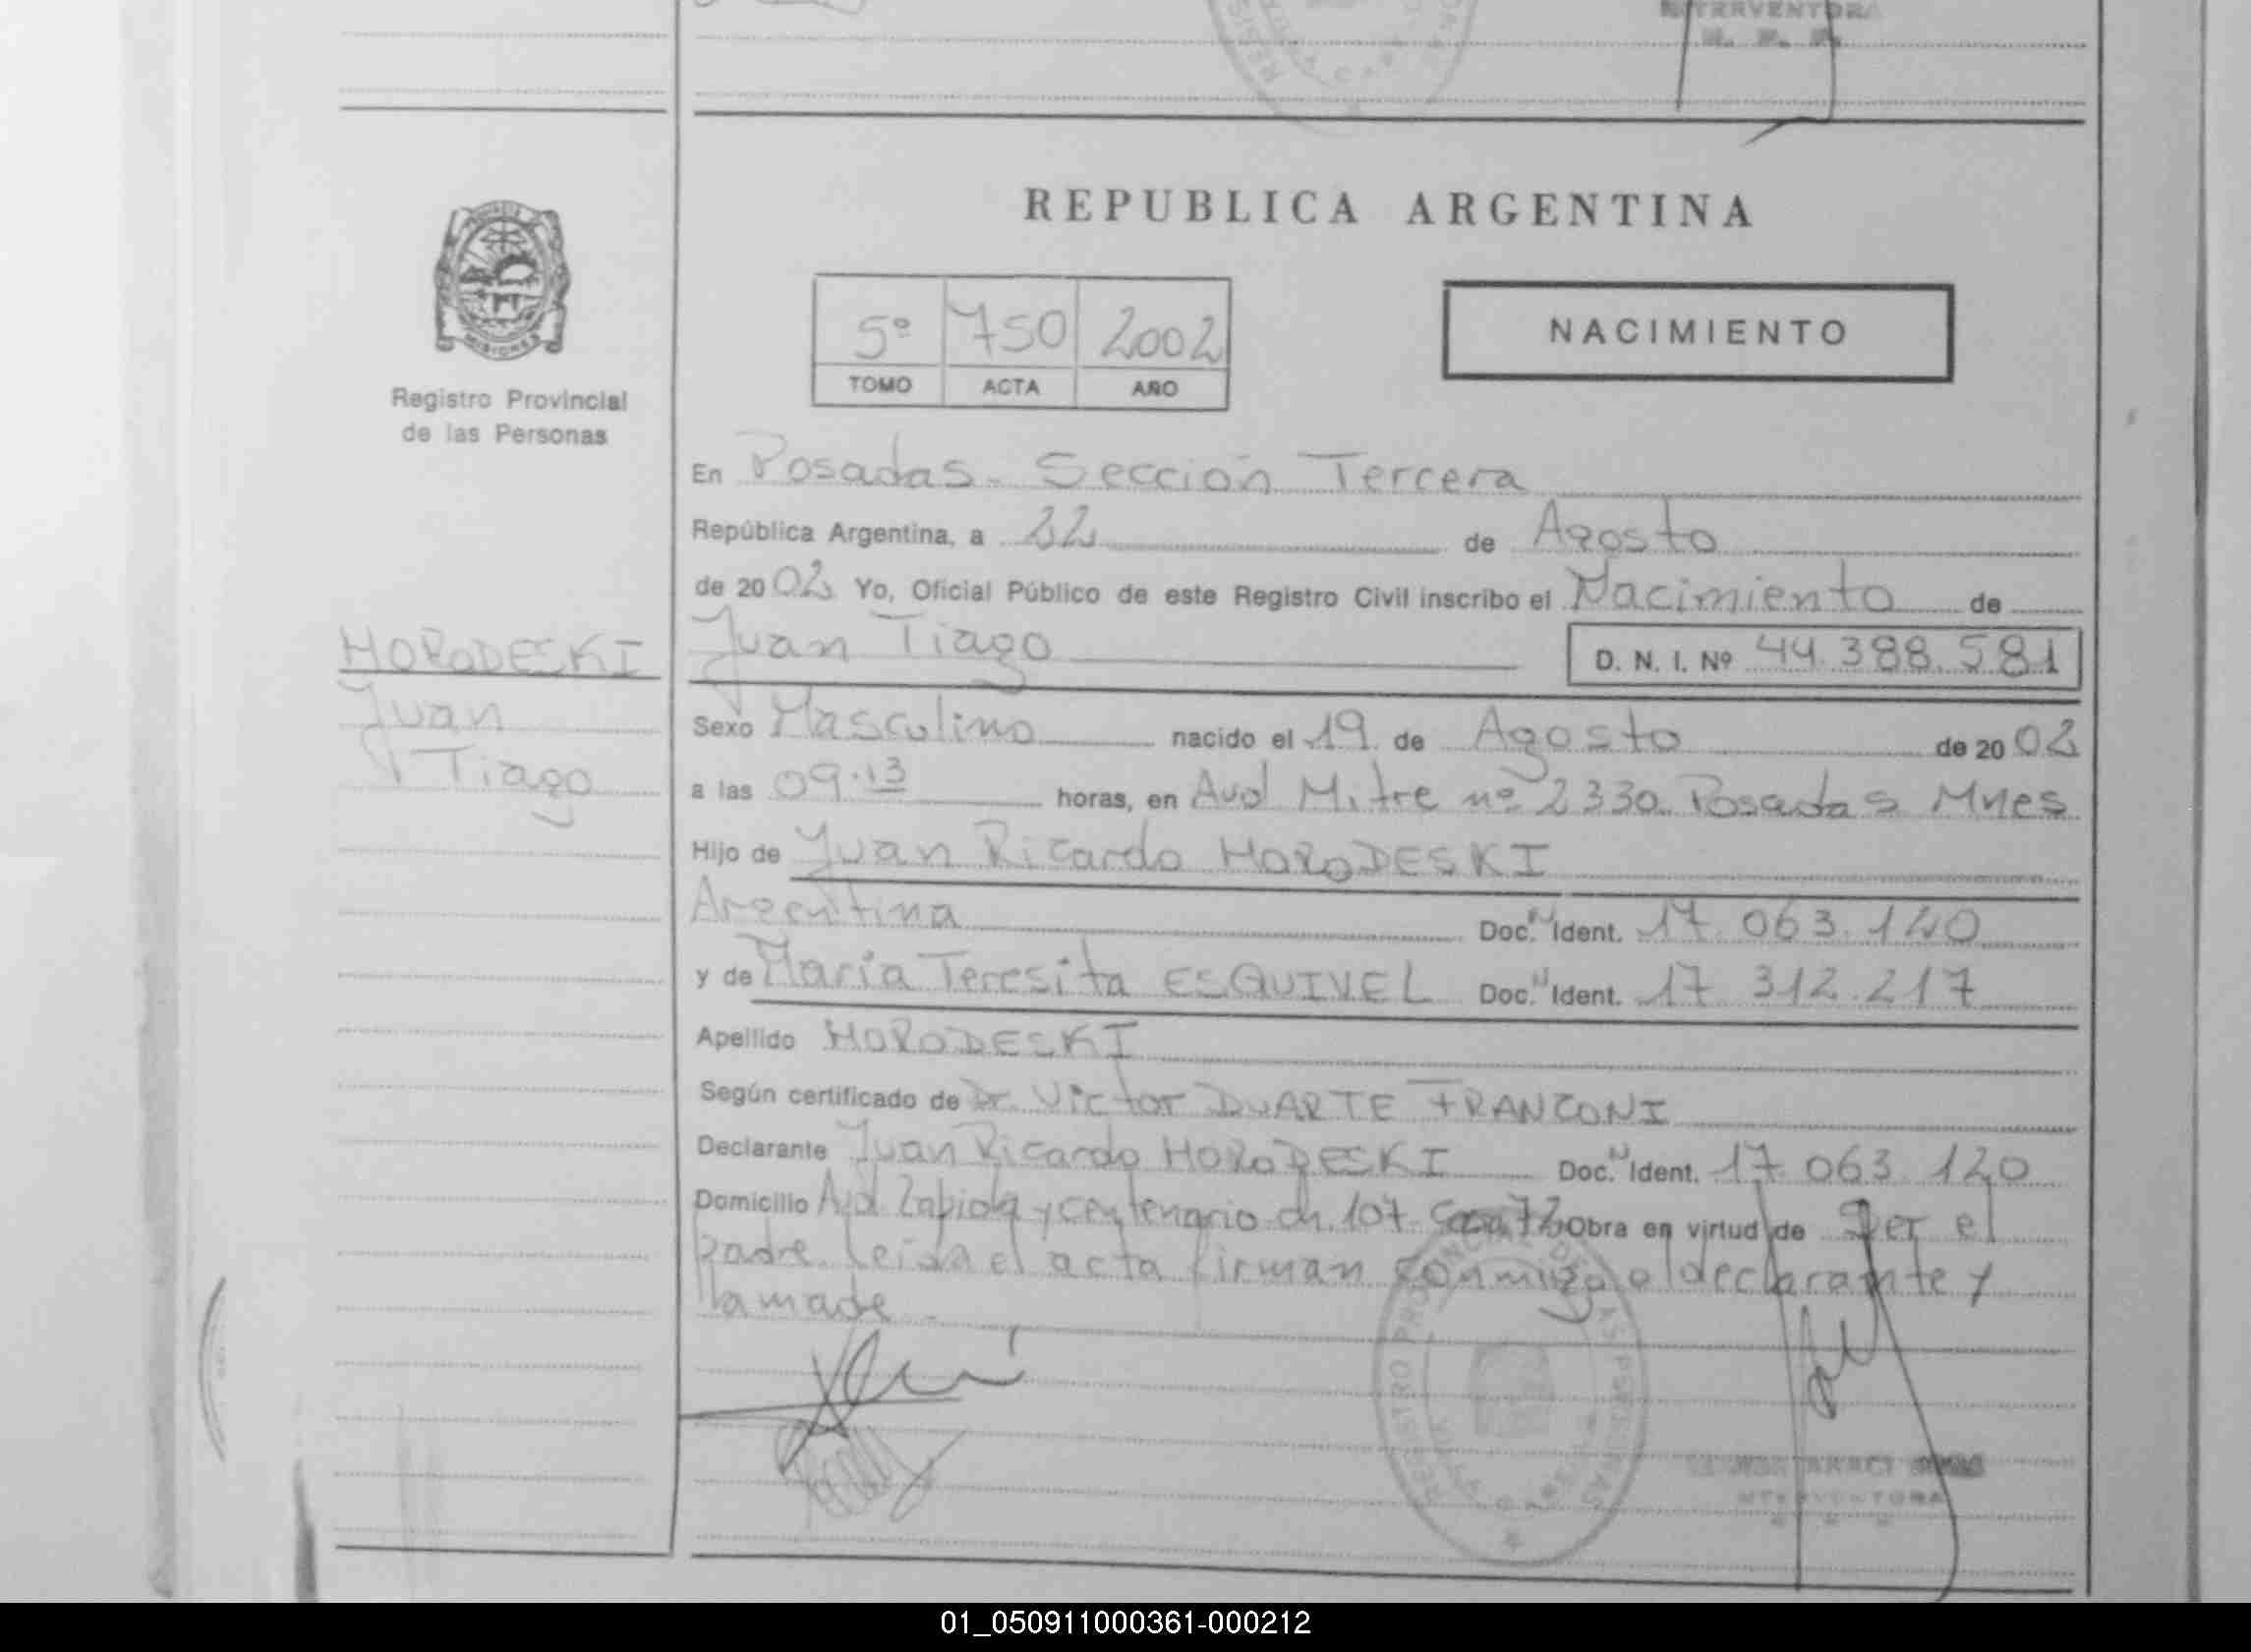 INTERVENTORA
REPUBLICA ARGENTINA
5º 750 2002
TOMO ACTA AÑO
NACIMIENTO
MISIONES
Registro Provincial
de las Personas
En Posadas - Sección Tercera
República Argentina, a 22 de Agosto
de 2002 Yo, Oficial Público de este Registro Civil inscribo el Nacimiento de
HORODESKI
Juan
Tiago
Juan Tiago D. N. I. Nº 44.388.581
Sexo Masculino nacido el 19 de Agosto de 2002
a las 09.13 horas, en Avd Mitre nº 2330 Posadas Mnes
Hijo de Juan Ricardo HORODESKI
Argentina Doc. N Ident. 17.063.120
y de María Teresita ESQUIVEL Doc. N Ident. 17.312.217
Apellido HORODESKI
Según certificado de Dr. Victor DUARTE FRANZONI
Declarante Juan Ricardo HORODESKI Doc. N Ident. 17.063.120
Domicilio Avd. Zapiola y centenario ch. 107 Obra en virtud de Ser el
padre. leida el acta firman conmigo el declarante y
la madre -
REGISTRO PROVINCIAL DE LAS PERSONAS
INTERVENTORA
01_050911000361-000212